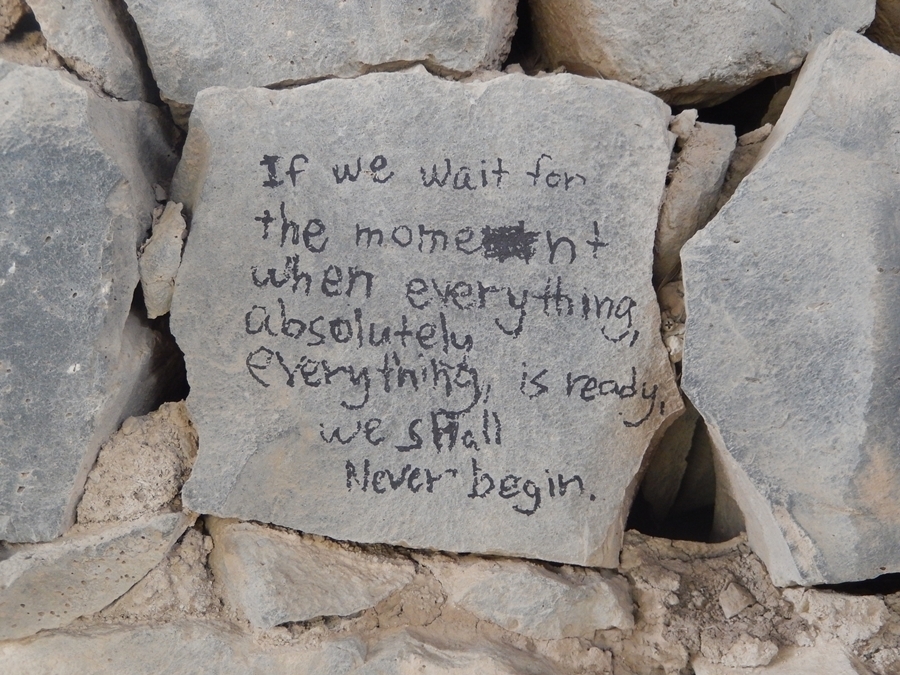 If we wait for
the moment
when everything,
absolutely
everything, is ready,
we shall
Never begin.